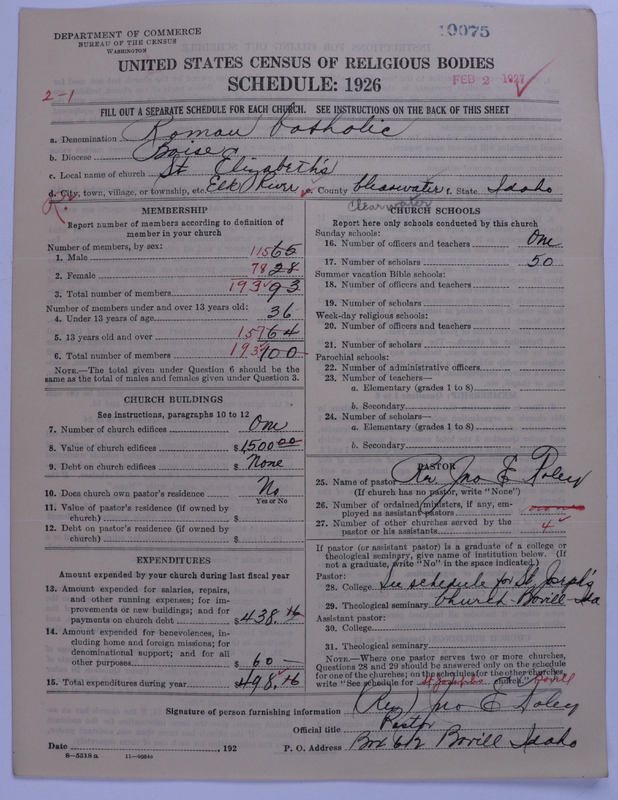 DEPARTMENT OF COMMERCE
BUREAU OF THE CENSUS
WASHINGTON
19075
UNITED STATES CENSUS OF RELIGIOUS BODIES
SCHEDULE: 1926
FEB 2 1927
2-1
FILL OUT A SEPARATE SCHEDULE FOR EACH CHURCH. SEE INSTRUCTIONS ON THE BACK OF THIS SHEET
a. Denomination Roman Catholic
b. Diocese Boise
c. Local name of church St Elizabeth's
d. City, town, village, or township, etc. Elk River e. County Clearwater f. State Idaho
Clearwater
MEMBERSHIP
Report number of members according to definition of
member in your church
Number of members, by sex:
1. Male 115 65
2. Female 78 28
3. Total number of members 193 93
Number of members under and over 13 years old:
4. Under 13 years of age 36
5. 13 years old and over 157 64
6. Total number of members 193 100
NOTE.—The total given under Question 6 should be the
same as the total of males and females given under Question 3.
CHURCH BUILDINGS
See instructions, paragraphs 10 to 12
7. Number of church edifices One
8. Value of church edifices $ 1500.00
9. Debt on church edifices $ None
10. Does church own pastor's residence No
Yes or No
11. Value of pastor's residence (if owned by
church) $
12. Debt on pastor's residence (if owned by
church) $
EXPENDITURES
Amount expended by your church during last fiscal year
13. Amount expended for salaries, repairs,
and other running expenses; for im-
provements or new buildings; and for
payments on church debt $ 438.16
14. Amount expended for benevolences, in-
cluding home and foreign missions; for
denominational support; and for all
other purposes $ 60 —
15. Total expenditures during year $ 498.16
CHURCH SCHOOLS
Report here only schools conducted by this church
Sunday schools:
16. Number of officers and teachers One
17. Number of scholars 50
Summer vacation Bible schools:
18. Number of officers and teachers
19. Number of scholars
Week-day religious schools:
20. Number of officers and teachers
21. Number of scholars
Parochial schools:
22. Number of administrative officers
23. Number of teachers—
a. Elementary (grades 1 to 8)
b. Secondary
24. Number of scholars—
a. Elementary (grades 1 to 8)
b. Secondary
PASTOR
25. Name of pastor Rev Jno E Foley
(If church has no pastor, write "None")
26. Number of ordained ministers, if any, em-
ployed as assistant pastors
27. Number of other churches served by the
pastor or his assistants 4
If pastor (or assistant pastor) is a graduate of a college or
theological seminary, give name of institution below. (If
not a graduate, write "No" in the space indicated.)
Pastor:
28. College See schedule for St Joseph's
29. Theological seminary Church - Bovill - Ida
Assistant pastor:
30. College
31. Theological seminary
NOTE.—Where one pastor serves two or more churches,
Questions 28 and 29 should be answered only on the schedule
for one of the churches; on the schedules for the other churches,
write "See schedule for St Josephs church." Bovill
Signature of person furnishing information Rev Jno E Foley
Official title Pastor
Date , 192 P. O. Address Box 612 Bovill Idaho
8-5318 a